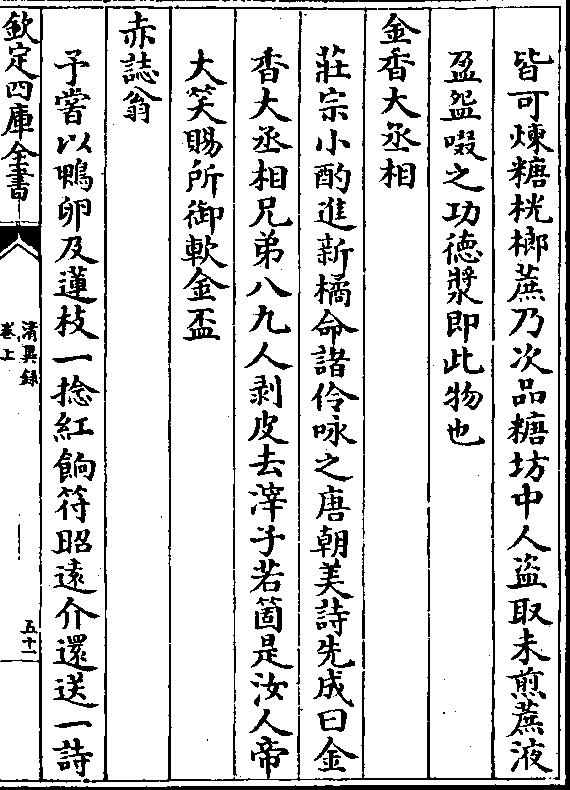 皆可煉糖桄榔蔗乃次品糖坊中人盗取未煎蔗液
盈盌啜之功徳漿即此物也
金香大丞相
莊宗小酌進新橘命諸伶咏之唐朝美詩先成曰金
香大丞相兄弟八九人剥皮去滓子若箇是汝人帝
大笑賜所御軟金盃
赤誌翁
予嘗以鴨卵及蓮枝一捻紅餉符昭遠介還送一詩
欽定四庫全書
清異録
卷上
五十一